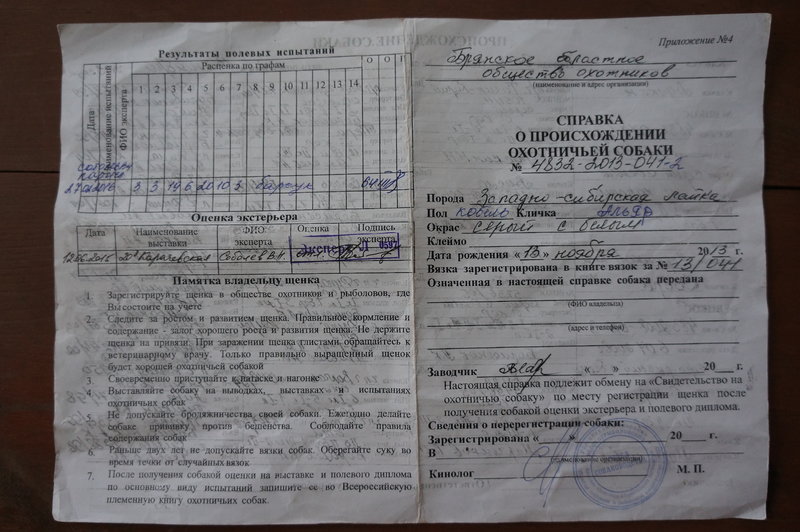 Результаты полевых испытаний
Расценка по графам
Дата
Наименование испытаний
ФИО эксперта
1 2 3 4 5 6 7 8 9 10 11 12 13 14
О О П
барсук
Оценка экстерьера
Дата
Наименование выставки
ФИО эксперта
Оценка
Подпись эксперта
12.06.2015 20я Карачевская Соболев В.Н.
Эксперт
Памятка владельцу щенка
1. Зарегистрируйте щенка в обществе охотников и рыболовов, где
Вы состоите на учете
2. Следите за ростом и развитием щенка. Правильное кормление и
содержание - залог хорошего роста и развития щенка. Не держите
щенка на привязи. При заражении щенка глистами обращайтесь к
ветеринарному врачу. Только правильно выращенный щенок
будет хорошей охотничьей собакой
3. Своевременно приступайте к натаске и нагонке
4. Выставляйте собаку на выводках, выставках и испытаниях
охотничьих собак
5. Не допускайте бродяжничества своей собаки. Ежегодно делайте
собаке прививку против бешенства. Соблюдайте правила
содержания собак
6. Раньше двух лет не допускайте вязки собак. Оберегайте суку во
время течки от случайных вязок
7. После получения собакой оценки на выставке и полевого диплома
по основному виду испытаний запишите ее во Всероссийскую
племенную книгу охотничьих собак
Приложение №4
Брянское областное
общество охотников
(наименование и адрес организации)
СПРАВКА
О ПРОИСХОЖДЕНИИ
ОХОТНИЧЬЕЙ СОБАКИ
№ 4832-2013-041-2
Порода Западно-сибирская лайка
Пол кобель Кличка Альдар
Окрас серый с белым
Клеймо
Дата рождения «13» ноября 2013 г.
Вязка зарегистрирована в книге вязок за № 13/041
Означенная в настоящей справке собака передана
(ФИО владельца)
(адрес и телефон)
Заводчик « » 20 г.
Настоящая справка подлежит обмену на «Свидетельство на
охотничью собаку» по месту регистрации щенка после
получения собакой оценки экстерьера и полевого диплома.
Сведения о перерегистрации собаки:
Зарегистрирована « » 20 г.
В
(наименование организации)
Кинолог М. П.